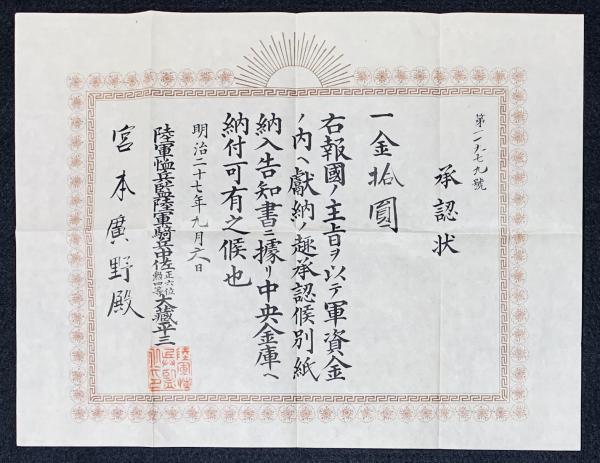 第一一九七九號
承認状
一金拾圓
右報國ノ主旨ヲ以テ軍資金
ノ内ヘ獻納ノ趣承認候別紙
納入告知書ニ據リ中央金庫ヘ
納付可有之候也
明治二十七年九月六日
陸軍恤兵監陸軍騎兵中佐正六位勲四等大藏平三
宮本廣野殿